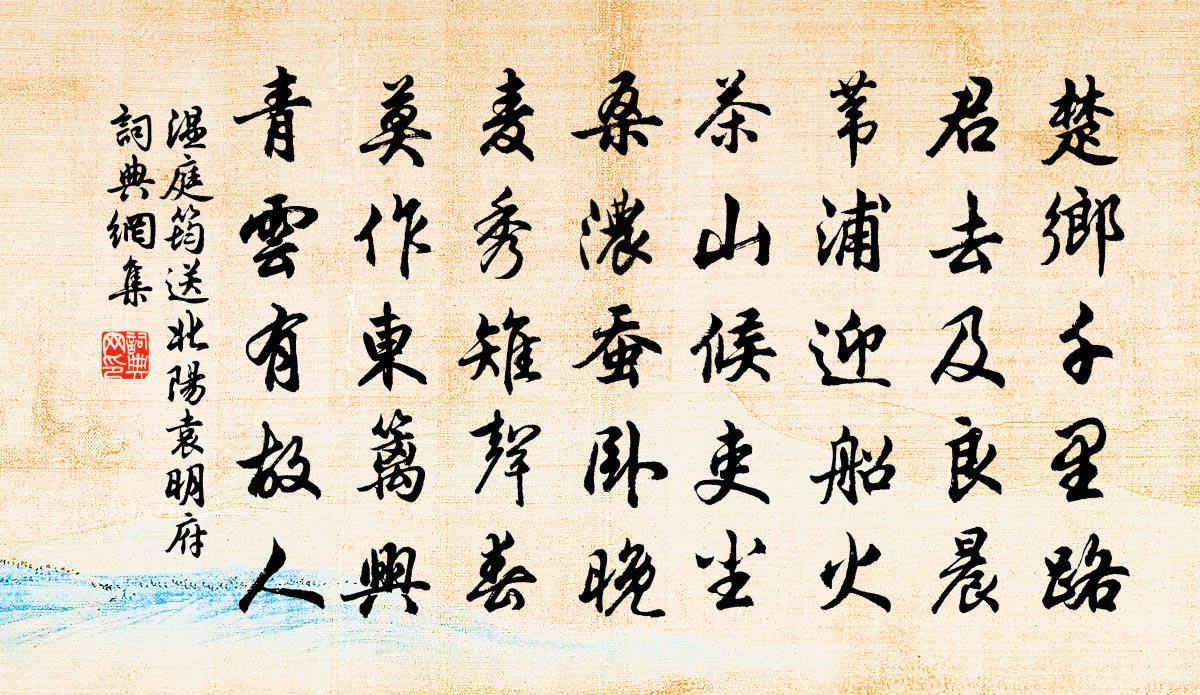 楚鄉千里路
君去及良晨
葦浦迎船火
茶山候吏尘
桑濃蚕卧晚
麦秀雉聲春
莫作東籬興
青雲有故人
温庭筠送北陽袁明府
詞典網集
詞典网印